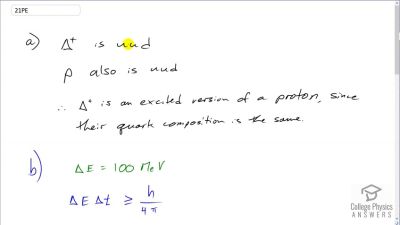 21PE
a) Δ⁺ is uud
p also is uud
∴ Δ⁺ is an excited version of a proton, since
their quark composition is the same.
b) ΔE = 100 MeV
ΔE Δt ≥ h / 4π
College Physics
ANSWERS